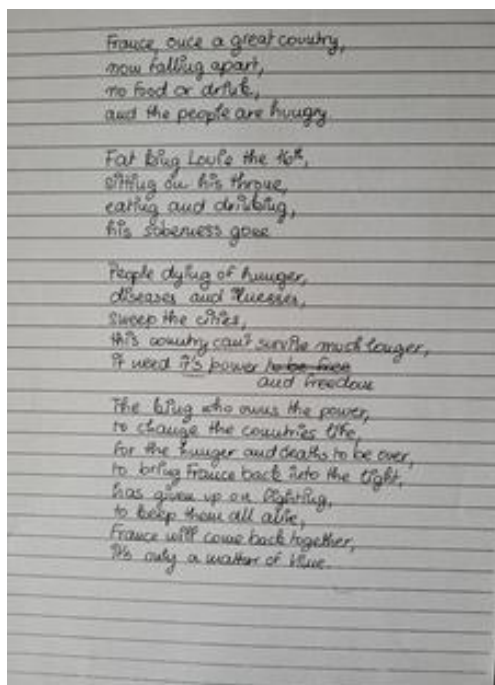 France, once a great country,
now falling apart,
no food or drink,
and the people are hungry
Fat king Louis the 16th,
sitting on his throne,
eating and drinking,
his soberness gone
People dying of hunger,
diseases and illnesses,
sweep the cities,
this country can't survive much longer,
it need it's power to be free
and freedom
The king who owns the power,
to change the countries life,
for the hunger and deaths to be over,
to bring France back into the light,
has given up on fighting,
to keep them all alive,
France will come back together,
it's only a matter of time.